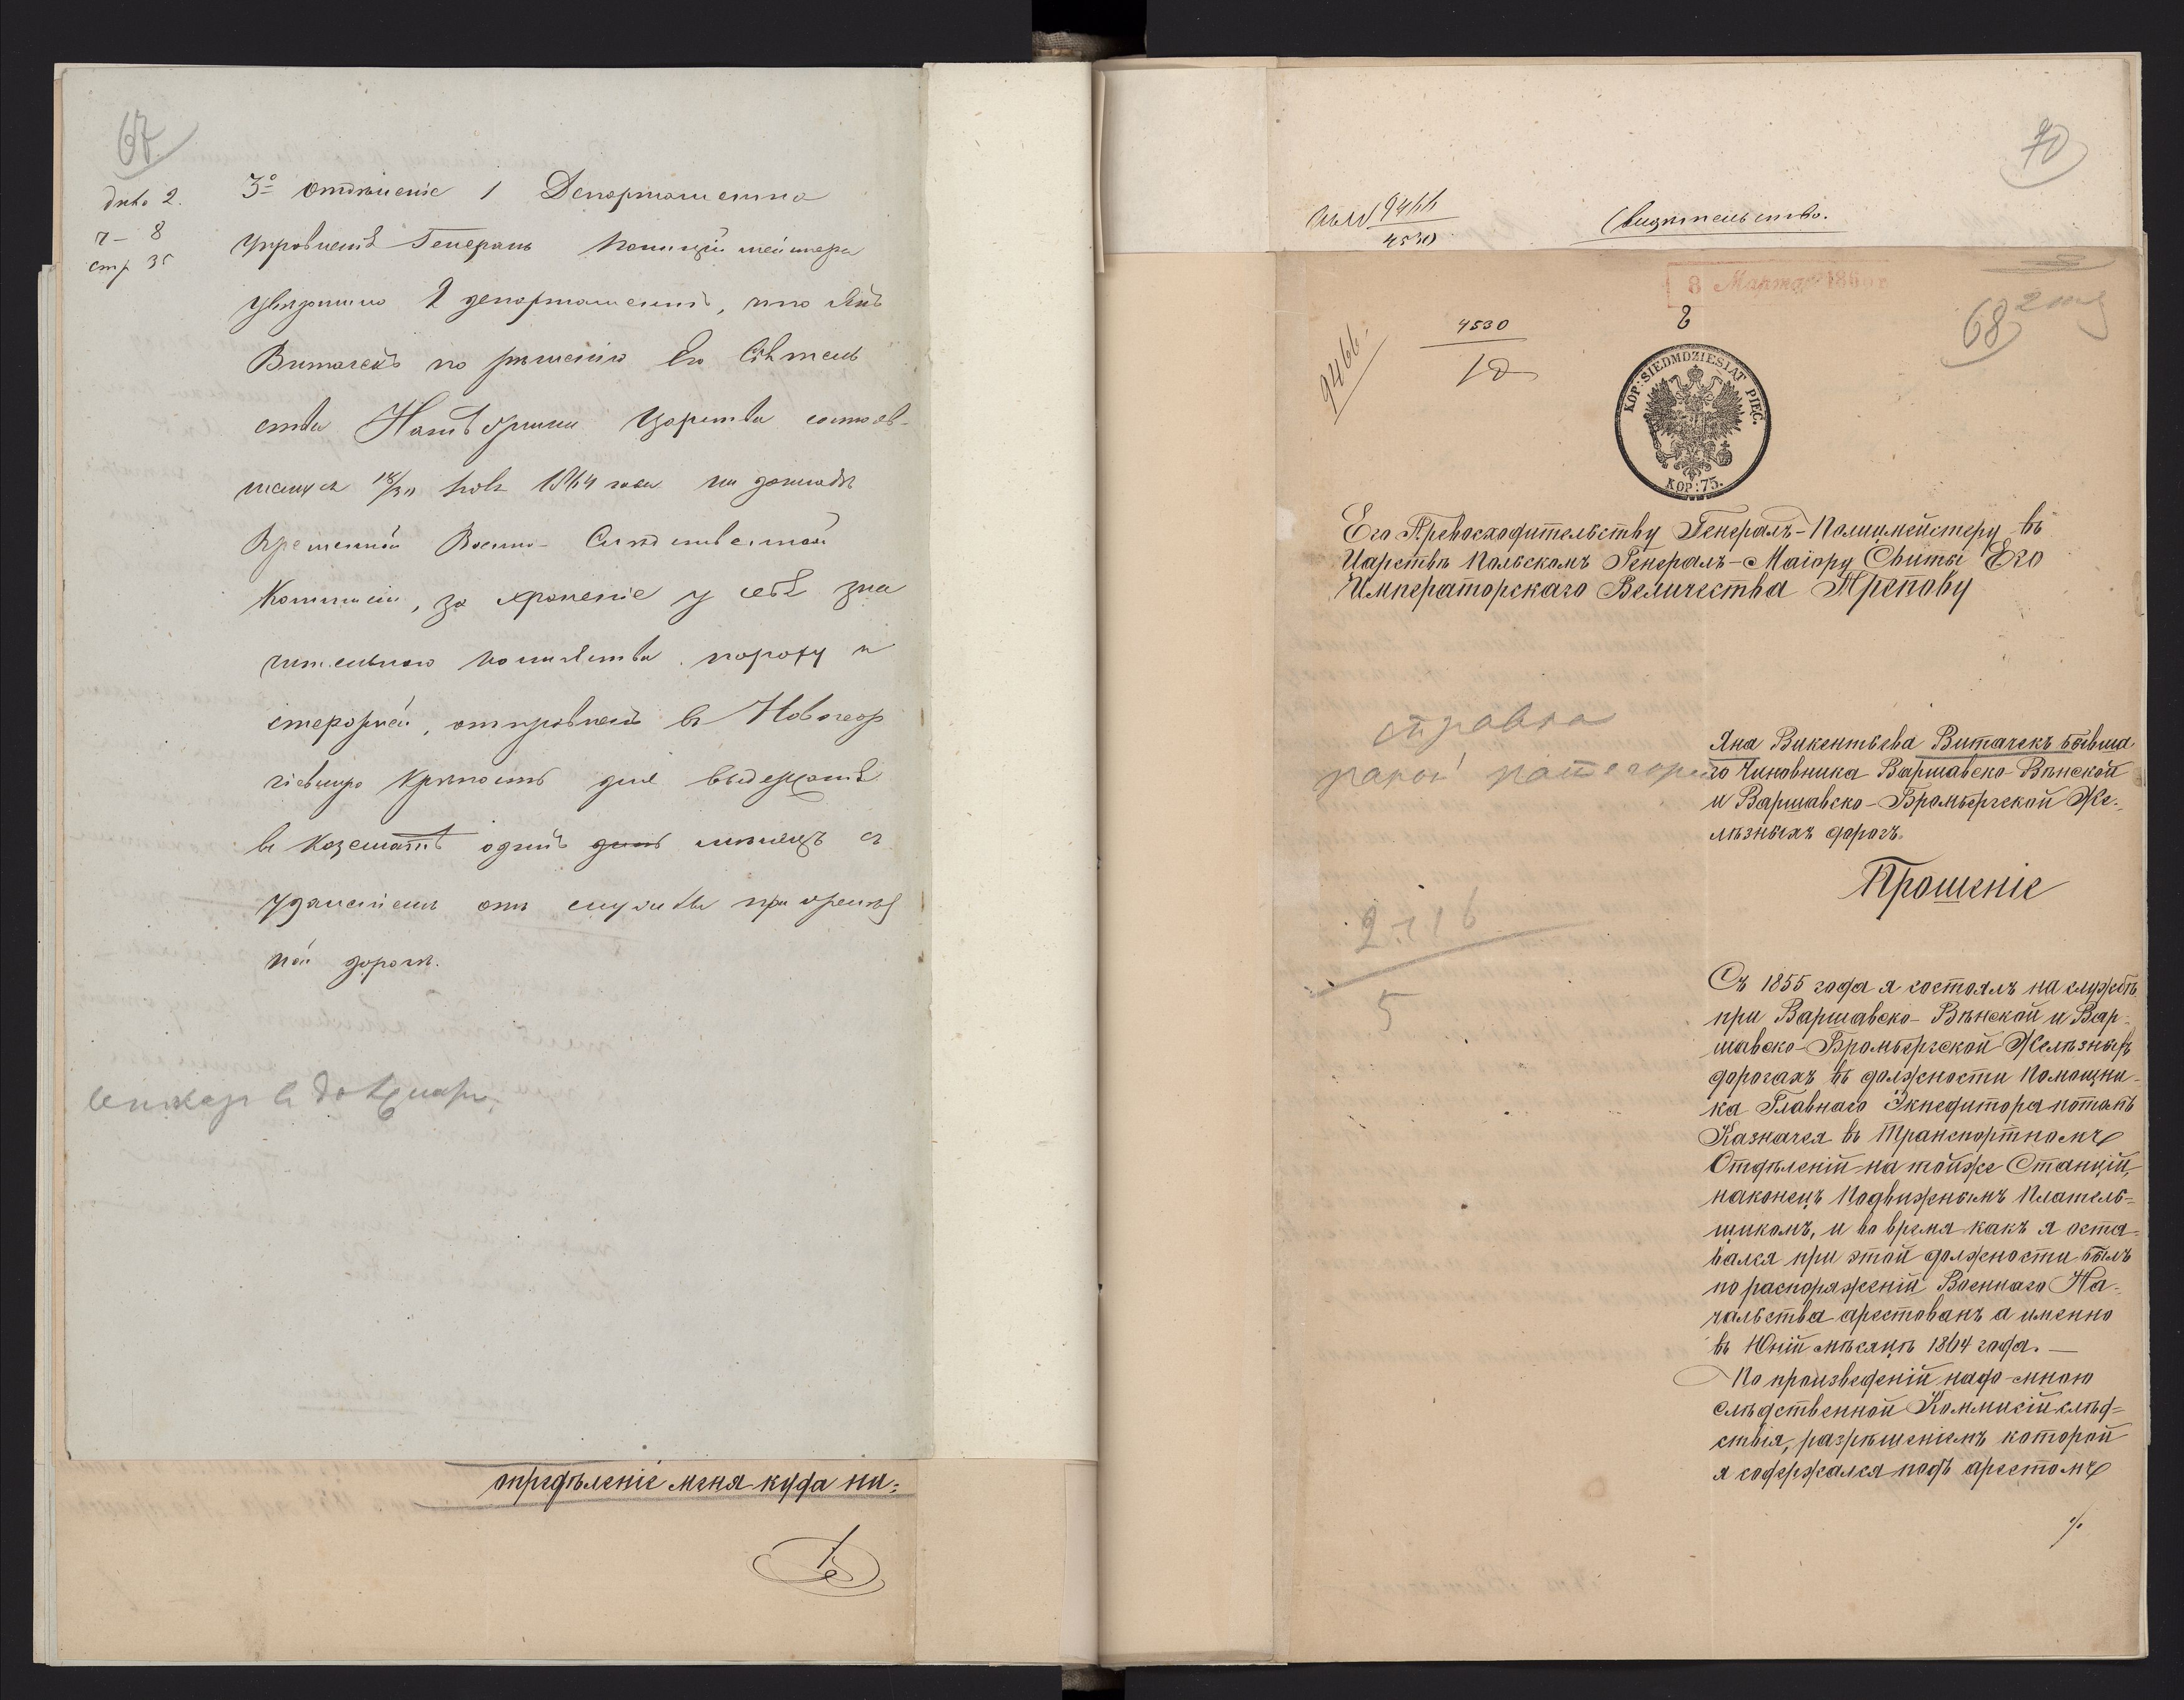 67
дѣло 2.
ч – 8
стр 35
3º отдѣленіе 1 Департамента
Управленія Генералъ Полиціймейстера
увѣдомило 2 департаментъ, что Янъ
Витачекъ по рѣшенію Его Сіятель
ства Намѣстника Царства состояв-
шемуся 18/30 1864 года на докладѣ
Временной Военно-Слѣдственной
Коммисіи, за храненіе у себя зна
чительнаго количества пороху и
отправленъ въ Новогеор
гіевскую крѣпость для выдержанія
въ казематѣ одинъ день мѣсяцъ съ
удаленіемъ отъ службы при желѣз
ной дорогѣ.
опредѣленіе меня куда ни=
70
9466
4530
Свидѣтельство.
8 Марта 186
9466.
4530
10
68
KOP: SIEDMDZIESIĄT PIĘĆ.
КОР: 75.
Его Превосходительству Генералъ-Полицмейстеру въ
Царствѣ Польскомъ Генералъ-Маіору Свиты Его
Императорскаго Величества Трепову
справка
какой категоріи
Яна Викентьева Витачекъ бывша
го Чиновника Варшавско-Вѣнской
и Варшавско-Бромбергской Же-
лѣзныхъ дорогъ.
Прошеніе
5
Съ 1855 года я состоялъ на службѣ
при Варшавско-Вѣнской и Вар-
шавско-Бромбергской Желѣзныхъ
дорогахъ въ должности Помощни-
ка Главнаго Экпедитора потомъ
Казначея въ Транспортномъ
Отдѣленіи на тойже Станціи,
наконецъ Подвижнымъ Платель=
щикомъ, и во время какъ я оста-
вался при этой должности былъ
по распоряженій Военнаго На-
чальства арестованъ а именно
въ Юній мѣсяцѣ 1864 года. —
По произведеній надо-мною
слѣдственной Коммисіи слѣд=
ствія, разрѣшеніемъ которой
я содержался подъ арестомъ
%